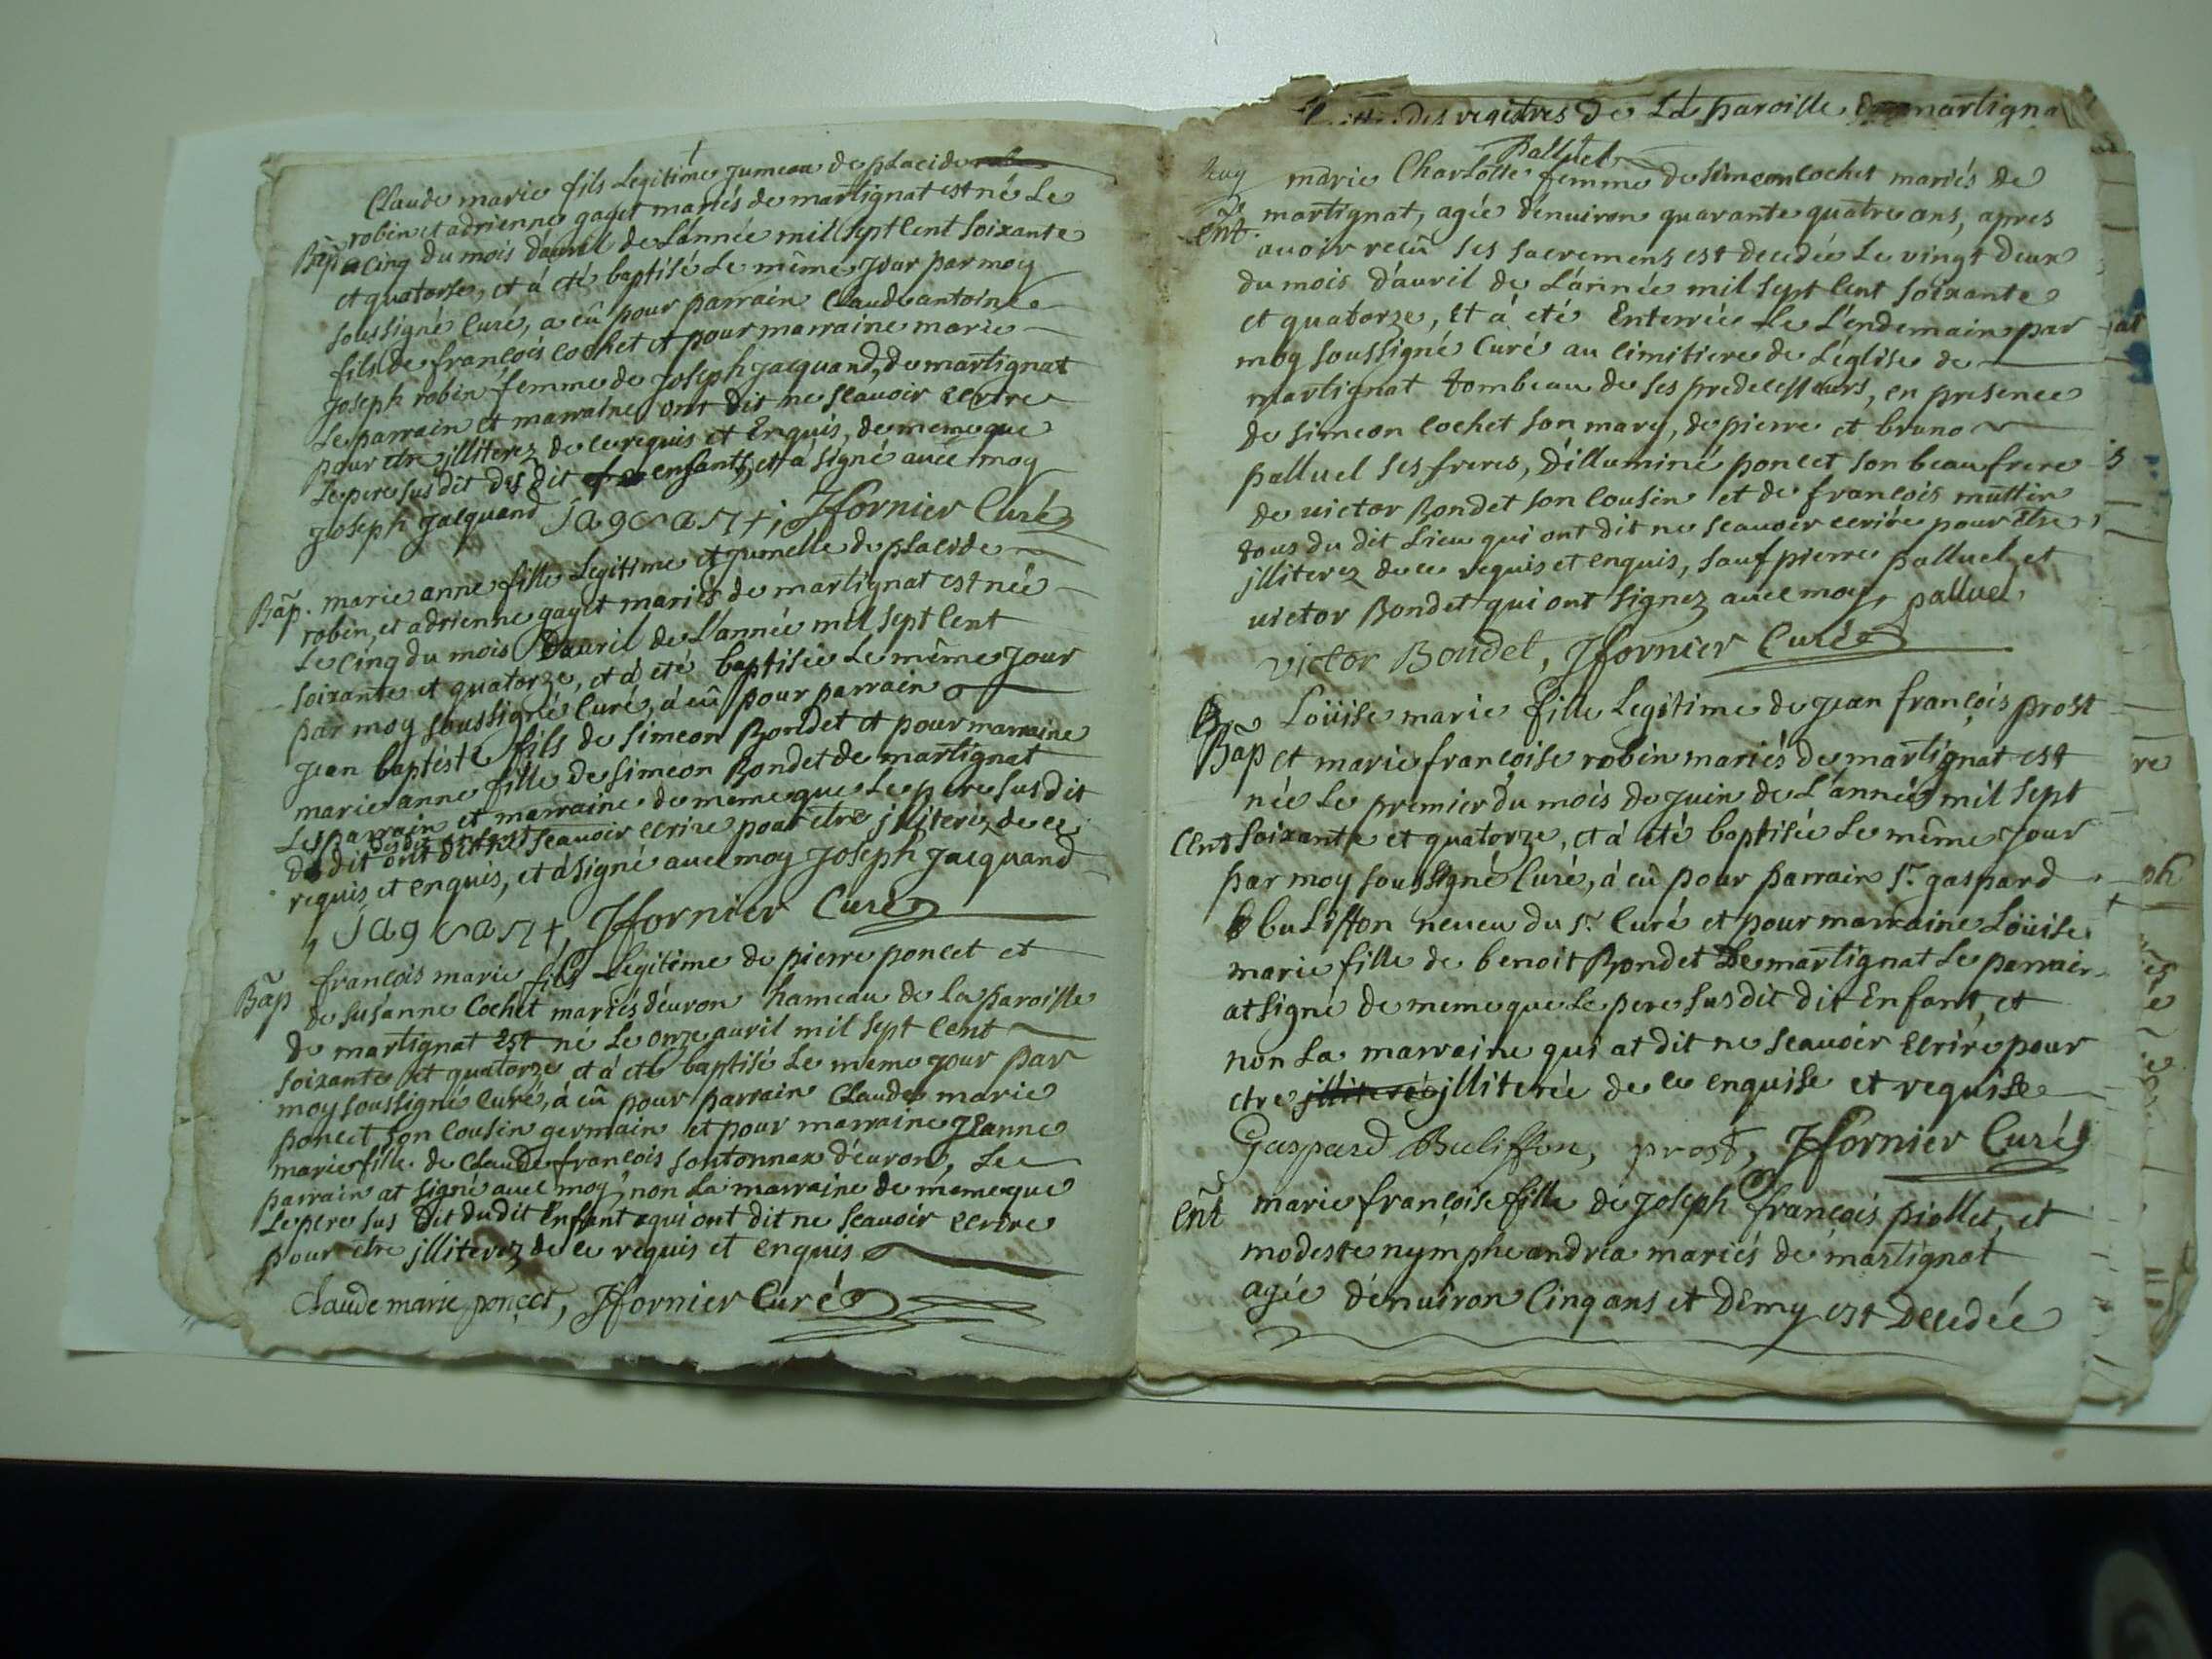 Claude marie fils Legitime jumeau de placide
robin et adrienne gayet mariés de martignat est né Le
Bãp cinq du mois d'auril de L'année mil sept Cent soixante
et quatorse, et á eté baptisé Le même jour par moy
soussigné Curé, a eû pour parrain Claude antoine
fils de françois cochet et pour marraine marie
joseph robin femme de joseph jacquand, de martignat
Le parrain et marraine ont dit ne sçauoir ecrire
pour etre jlliterez de ce requis et Enquis, de meme que
Le pere sus dit des dit enfants, et a signé auec moy
joseph jacquand jaqcant, Jfornier Curé
Bãp. marie anne fille Legitime et jumelle de placide
robin, et adrienne gayet mariés de martignat est née
Le cinq du mois D'auril de L'année mil sept Cent
soixante et quatorze, et á eté baptisée Le même jour
par moy soussigné Curé, á eû pour parrain
jean baptiste fils de simeon Bondet et pour marraine
marie anne fille de simeon Bondet de martignat
Les parrain et marraine de meme que Le pere sus dit
du dit enfant
ont dit ne sçauoir ecrire pour etre jlliterez de ce
requis et enquis, et á signé auec moy joseph jacquand
jaqcant, Jfornier Curé
françois marie fils Legitime de pierre poncet et
Bãp de susanne Cochet mariés d'éuron hameau de La paroisse
de martignat est né Le onze auril mil sept Cent
soixante et quatorze et á eté baptisé Le meme jour par
moy soussigné Curé, á eû pour parrain Claude marie
poncet son Cousin germain et pour marraine jeanne
marie fille de Claude françois sontonnax d'éuron, Le
parrain at signé auec moy, non La marraine de meme que
Le pere sus dit dudit Enfant qui ont dit ne sçauoir ecrire
pour etre jlliterez de ce requis et enquis
Claude marie poncet, Jfornier Curé
des registres De La paroisse martigna
Palluel
marie Charlotte femme de simeon cochet mariés de
Ent. martignat, agée d'enuiron quarante quatre ans, apres
auoir recû ses sacremens est decedée Le vingt deux
du mois d'auril de L'année mil sept Cent soixante
et quatorze, et á eté Enterrée Le L'endemain par
moy soussigné Curé au cimitiere de L'église de
martignat tombeau de ses predecesseurs, en presence
de simeon Cochet son mary, de pierre et bruno
palluel ses freres, d'illuminé poncet son beau frere
de uictor Bondet son Cousin et de françois muttin
tous du dit Lieu qui ont dit ne sçauoir ecrire pour etre
jlliterez de ce requis et enquis, sauf pierre palluel et
uictor Bondet qui ont signez auec moy, palluel,
victor Bondet, Jfornier Curé
Loüise marie fille Legitime de jean françois prost
Bãp et marie françoise robin mariés de martignat est
née Le premier du mois de juin de L'année mil sept
Cent soixante et quatorze, et á eté baptisée Le même jour
par moy soussigné Curé, á eû pour parrain Sr. gaspard
buliffon neueu du Sr. Curé et pour marraine Loüise
marie fille de benoit Bondet De martignat Le parrain
at signé de meme que Le pere sus dit dit Enfant, et
non La marraine qui at dit ne sçauoir Ecrire pour
etre jlliterée de ce enquise et requise
Gaspard Buliffon, prost, Jfornier Curé
Ent marie françoise fille de joseph françois piollet, et
modeste nymphe andréa mariés de martignat
agée d'enuiron Cinq ans et Demy est Decedée